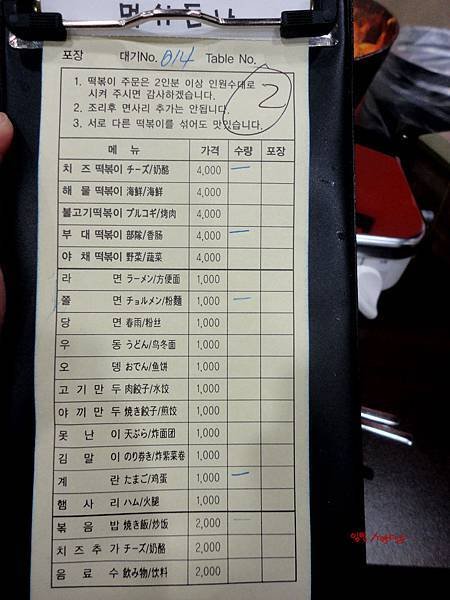 포장 대기No. 014 Table No.
2
1. 떡볶이 주문은 2인분 이상 인원수대로
시켜 주시면 감사하겠습니다.
2. 조리후 면사리 추가는 안됩니다.
3. 서로 다른 떡볶이를 섞어도 맛있습니다.
메 뉴 가격 수량 포장
치 즈 떡볶이 チーズ/奶酪 4,000 一
해 물 떡볶이 海鮮/海鲜 4,000
불고기떡볶이 プルコギ/烤肉 4,000
부 대 떡볶이 部隊/香肠 4,000 一
야 채 떡볶이 野菜/蔬菜 4,000
라 면 ラーメン/方便面 1,000
쫄 면 チョルメン/粉麵 1,000 一
당 면 春雨/粉丝 1,000
우 동 うどん/乌冬面 1,000
오 뎅 おでん/鱼饼 1,000
고 기 만 두 肉餃子/水饺 1,000
야 끼 만 두 焼き餃子/煎饺 1,000
못 난 이 天ぷら/炸面团 1,000
김 말 이 のり巻き/炸紫菜卷 1,000
계 란 たまご/鸡蛋 1,000 一
햄 사 리 ハム/火腿 1,000
볶 음 밥 焼き飯/炒饭 2,000 一
치 즈 추 가 チーズ/奶酪 2,000
음 료 수 飲み物/饮料 2,000